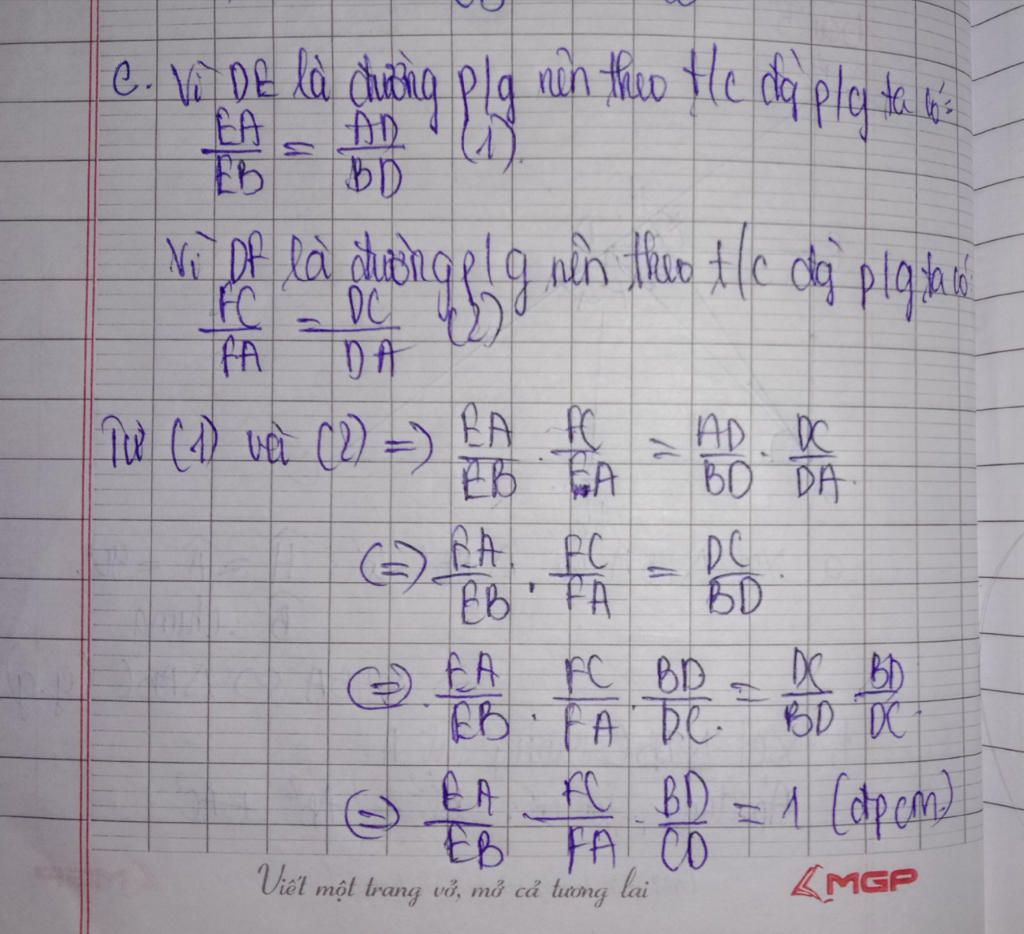 c. Vì DE là đường p/g nên theo t/c đg p/g ta có:
EA/EB = AD/BD (1)
Vì DF là đường p/g nên theo t/c đg p/g ta có
FC/FA = DC/DA (2)
Từ (1) và (2) => EA/EB . FC/FA = AD/BD . DC/DA.
(=) EA/EB . FC/FA = DC/BD.
(=) EA/EB . FC/FA . BD/DC = DC/BD BD/DC.
(=) EA/EB . FC/FA . BD/CD = 1 (đpcm)
Viết một trang vở, mở cả tương lai
MGP